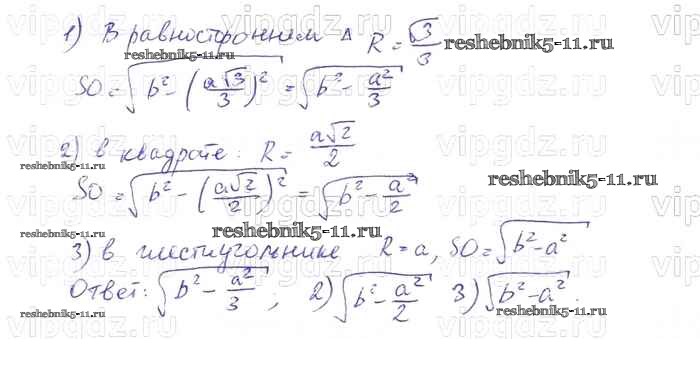 1) В равностороннем Δ R = √3/3 reshebnik5-11.ru
reshebnik5-11.ru
SO = √(b² - (a√3/3)²) = √(b² - a²/3)
2) в квадрате: R = a√2/2
reshebnik5-11.ru
SO = √(b² - (a√2/2)²) = √(b² - a²/2) reshebnik5-11.ru
reshebnik5-11.ru
reshebnik5-11.ru
3) в шестиугольнике R = a, SO = √(b² - a²)
Ответ: √(b² - a²/3); 2) √(b² - a²/2) 3) √(b² - a²).
reshebnik5-11.ru
reshebnik5-11.ru
vipgdz.ru vipgdz.ru vipgdz.ru